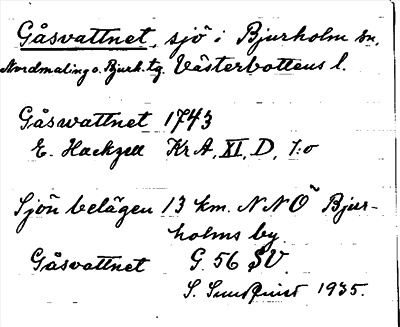 Gåsvattnet, sjö i Bjurholm sn,
Nordmaling o. Bjurh. tg. Västerbottens l.
Gåswattnet 1743
E. Hackzell KrA, XI, D, 1:o
Sjön belägen 13 km. NNÖ Bjur-
holms by
Gåsvattnet G. 56 SV
S. Sundqvist 1935.